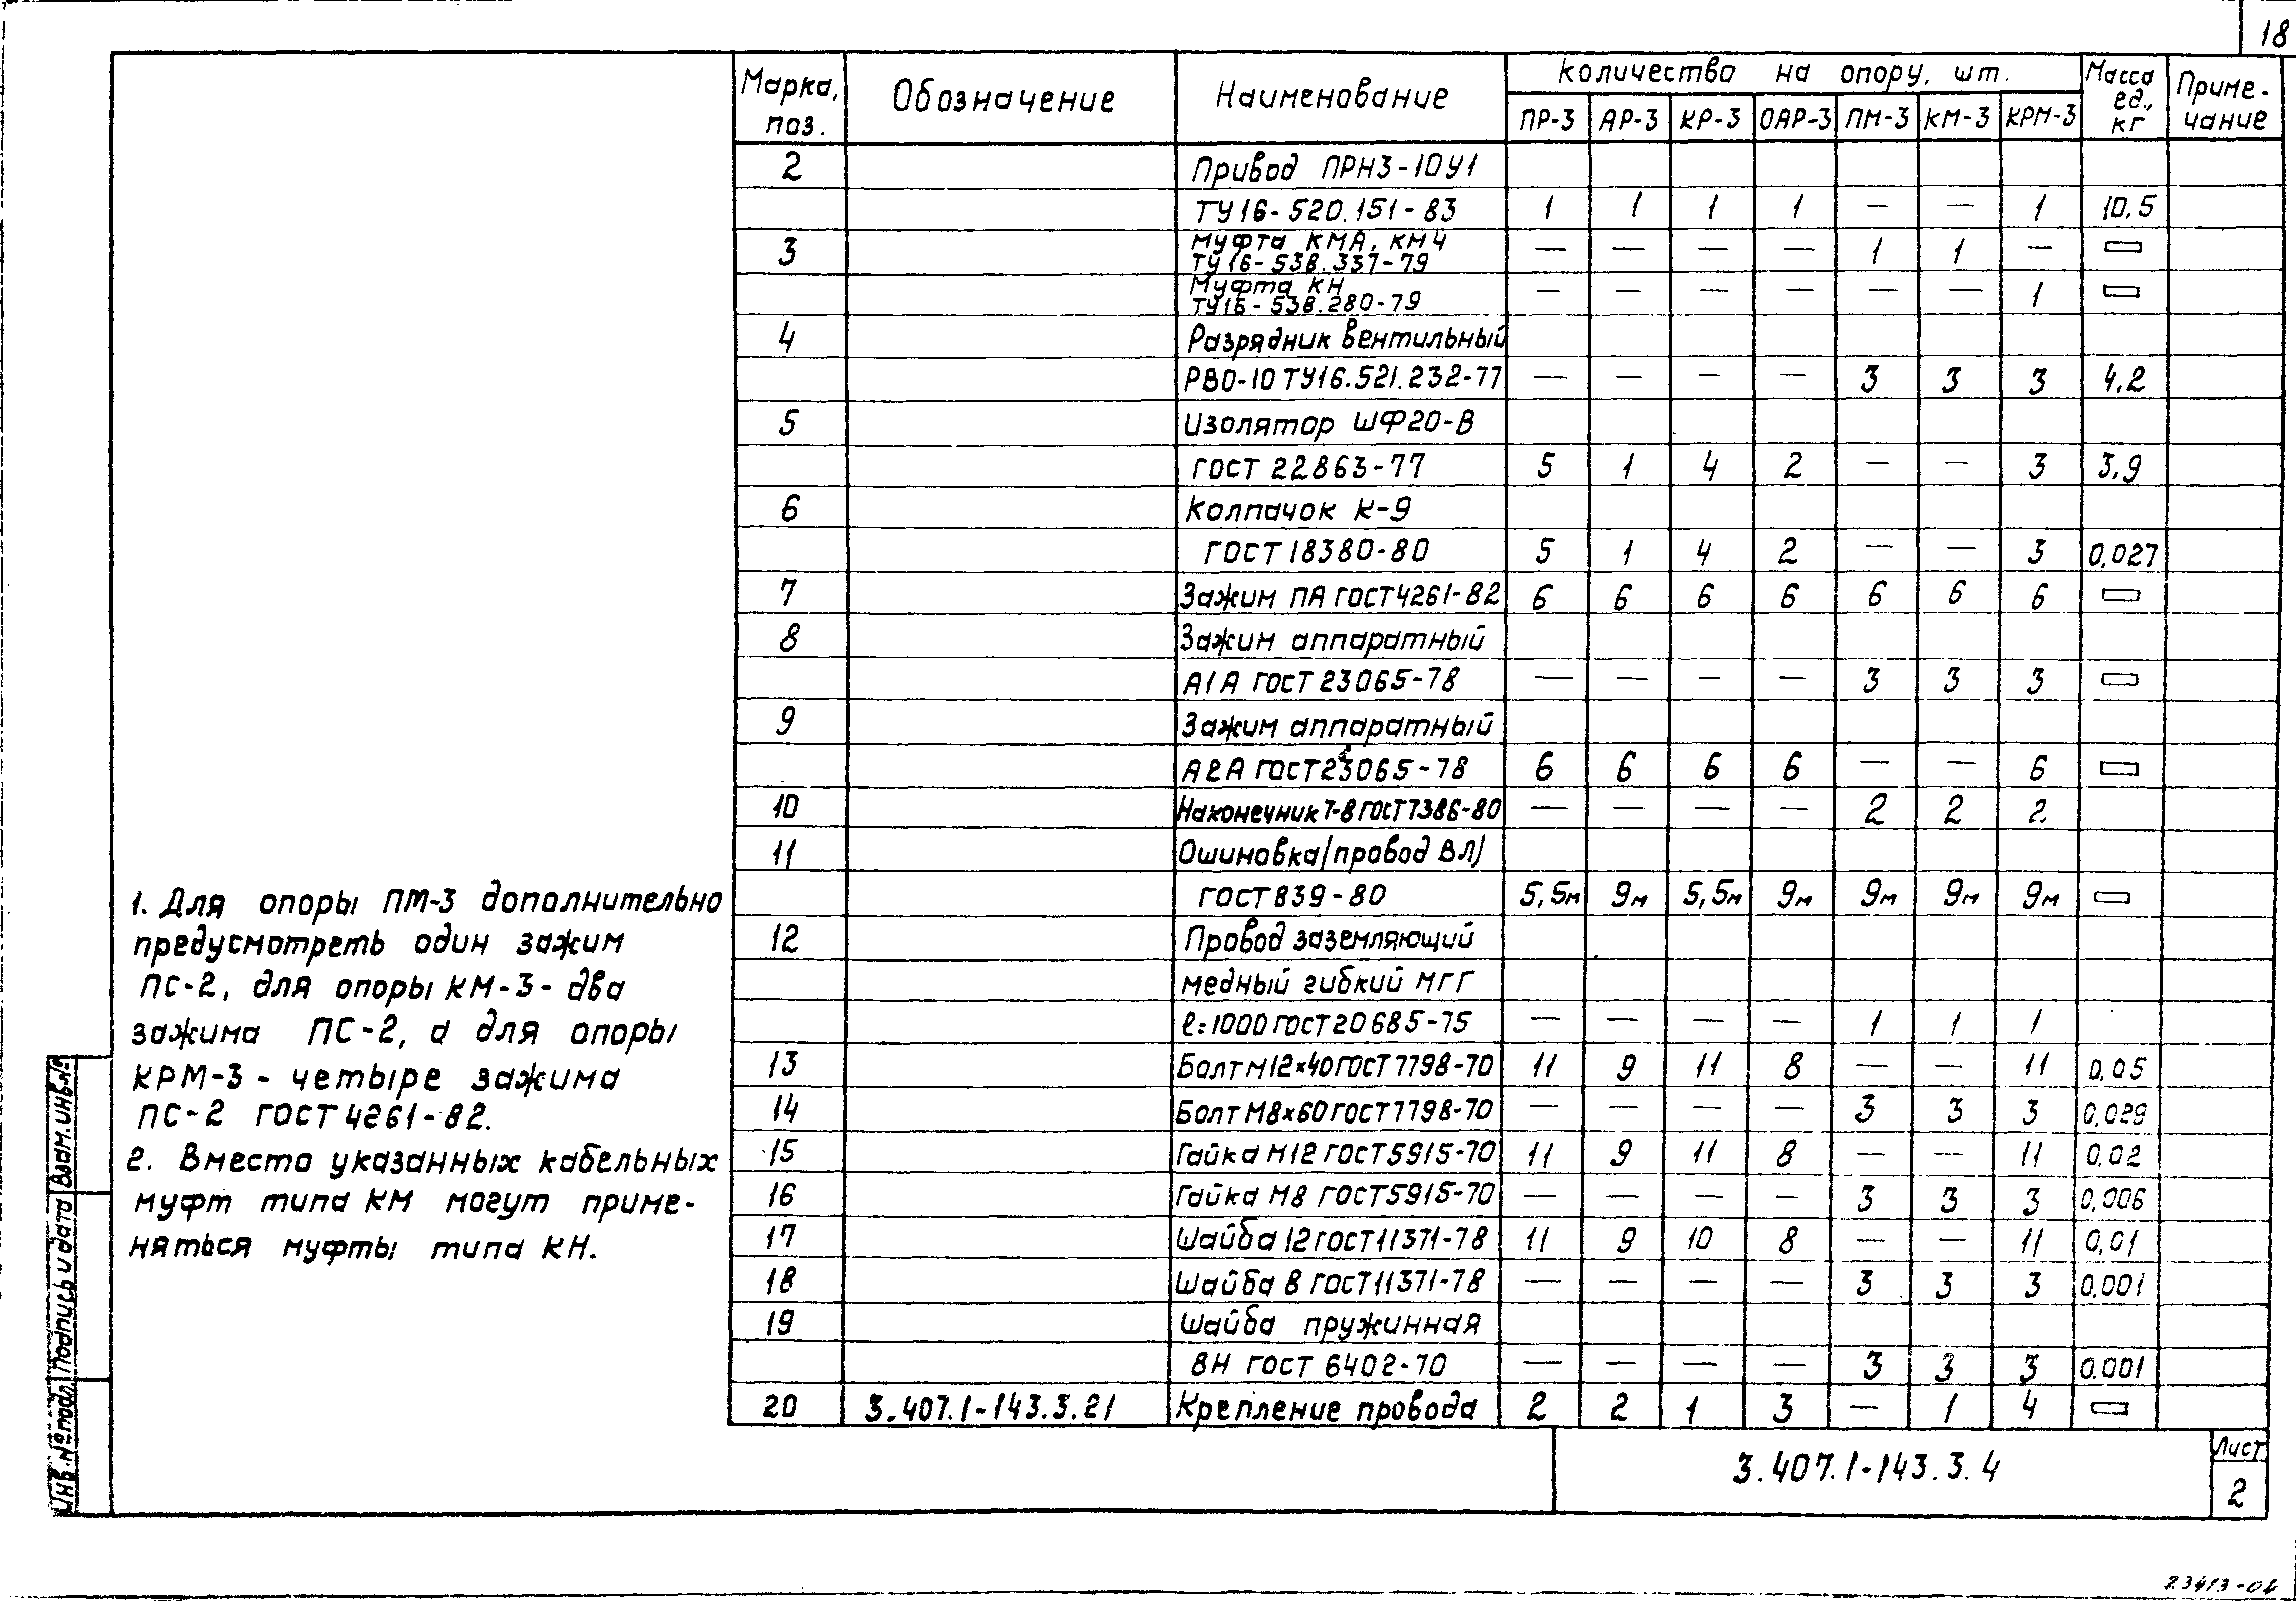 18
Марка, поз. Обозначение Наименование Количество на опору, шт. Масса ед., кг Приме-чание
ПР-3 АР-3 КР-3 ОАР-3 ПМ-3 КМ-3 КРМ-3
2 Привод ПРНЗ-10У1
ТУ16-520.151-83 1 1 1 1 — — 1 10,5
3 Муфта КМА, КМЧ
ТУ16-538.337-79 — — — — 1 1 —
Муфта КН
ТУ16-538.280-79 — — — — — — 1
4 Разрядник вентильный
РВО-10 ТУ16.521.232-77 — — — — 3 3 3 4,2
5 Изолятор ШФ20-В
ГОСТ 22863-77 5 1 4 2 — — 3 3,9
6 Колпачок К-9
ГОСТ 18380-80 5 1 4 2 — — 3 0,027
7 Зажим ПА ГОСТ 4261-82 6 6 6 6 6 6 6
8 Зажим аппаратный
А1А ГОСТ 23065-78 — — — — 3 3 3
9 Зажим аппаратный
А2А ГОСТ 23065-78 6 6 6 6 — — 6
10 Наконечник Т-8 ГОСТ 7386-80 — — — — 2 2 2
11 Ошиновка (провод ВЛ)
ГОСТ 839-80 5,5м 9м 5,5м 9м 9м 9м 9м
12 Провод заземляющий
медный гибкий МГГ
ℓ=1000 ГОСТ 20685-75 — — — — 1 1 1
13 Болт М12×40 ГОСТ 7798-70 11 9 11 8 — — 11 0,05
14 Болт М8×60 ГОСТ 7798-70 — — — — 3 3 3 0,029
15 Гайка М12 ГОСТ 5915-70 11 9 11 8 — — 11 0,02
16 Гайка М8 ГОСТ 5915-70 — — — — 3 3 3 0,006
17 Шайба 12 ГОСТ 11371-78 11 9 10 8 — — 11 0,01
18 Шайба 8 ГОСТ 11371-78 — — — — 3 3 3 0,001
19 Шайба пружинная
8Н ГОСТ 6402-70 — — — — 3 3 3 0.001
20 3.407.1-143.3.21 Крепление провода 2 2 1 3 — 1 4
1. Для опоры ПМ-3 дополнительно
предусмотреть один зажим
ПС-2, для опоры КМ-3 - два
зажима ПС-2, а для опоры
КРМ-3 - четыре зажима
ПС-2 ГОСТ 4261-82.
2. Вместо указанных кабельных
муфт типа КМ могут приме-
няться муфты типа КН.
Инв.№ подл. Подпись и дата Взам.инв.№
3.407.1-143.3.4
Лист
2